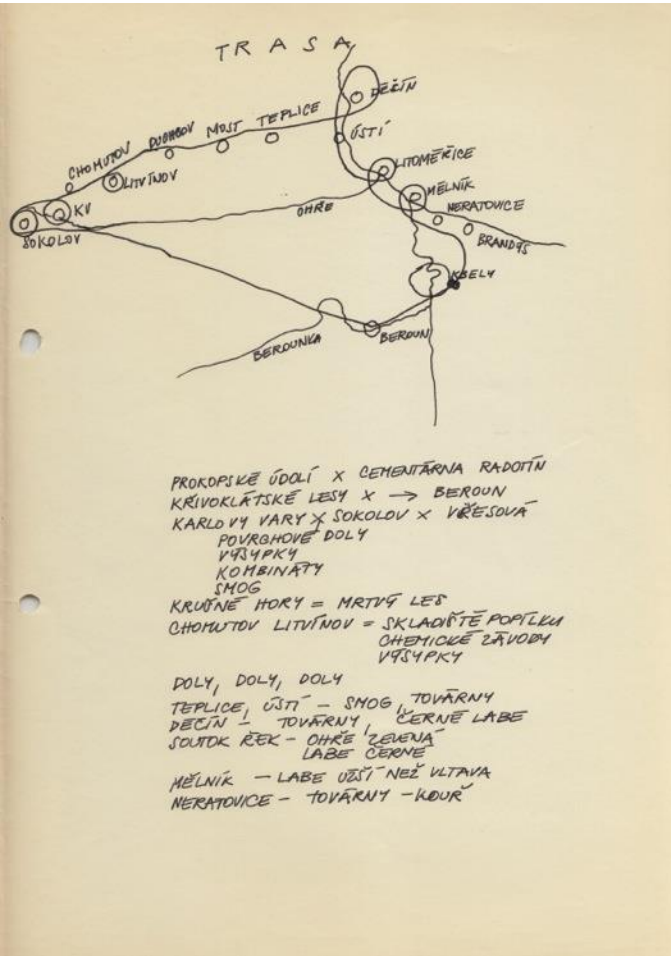 TRASA
DĚČÍN
ÚSTÍ
TEPLICE
MOST
DUCHCOV
CHOMUTOV
LITVÍNOV
KV
SOKOLOV
OHŘE
LITOMĚŘICE
MĚLNÍK
NERATOVICE
BRANDÝS
KBELY
BEROUN
BEROUNKA
PROKOPSKÉ ÚDOLÍ X CEMENTÁRNA RADOTÍN
KŘIVOKLÁTSKÉ LESY X → BEROUN
KARLOVY VARY X SOKOLOV X VŘESOVÁ
POVRCHOVÉ DOLY
VÝSYPKY
KOMBINÁTY
SMOG
KRUŠNÉ HORY = MRTVÝ LES
CHOMUTOV LITVÍNOV = SKLADIŠTĚ POPÍLKU
CHEMICKÉ ZÁVODY
VÝSYPKY
DOLY, DOLY, DOLY
TEPLICE, ÚSTÍ – SMOG, TOVÁRNY
DĚČÍN – TOVÁRNY, ČERNÉ LABE
SOUTOK ŘEK – OHŘE ZELENÁ
LABE ČERNÉ
MĚLNÍK – LABE UŽŠÍ NEŽ VLTAVA
NERATOVICE – TOVÁRNY – KOUŘ